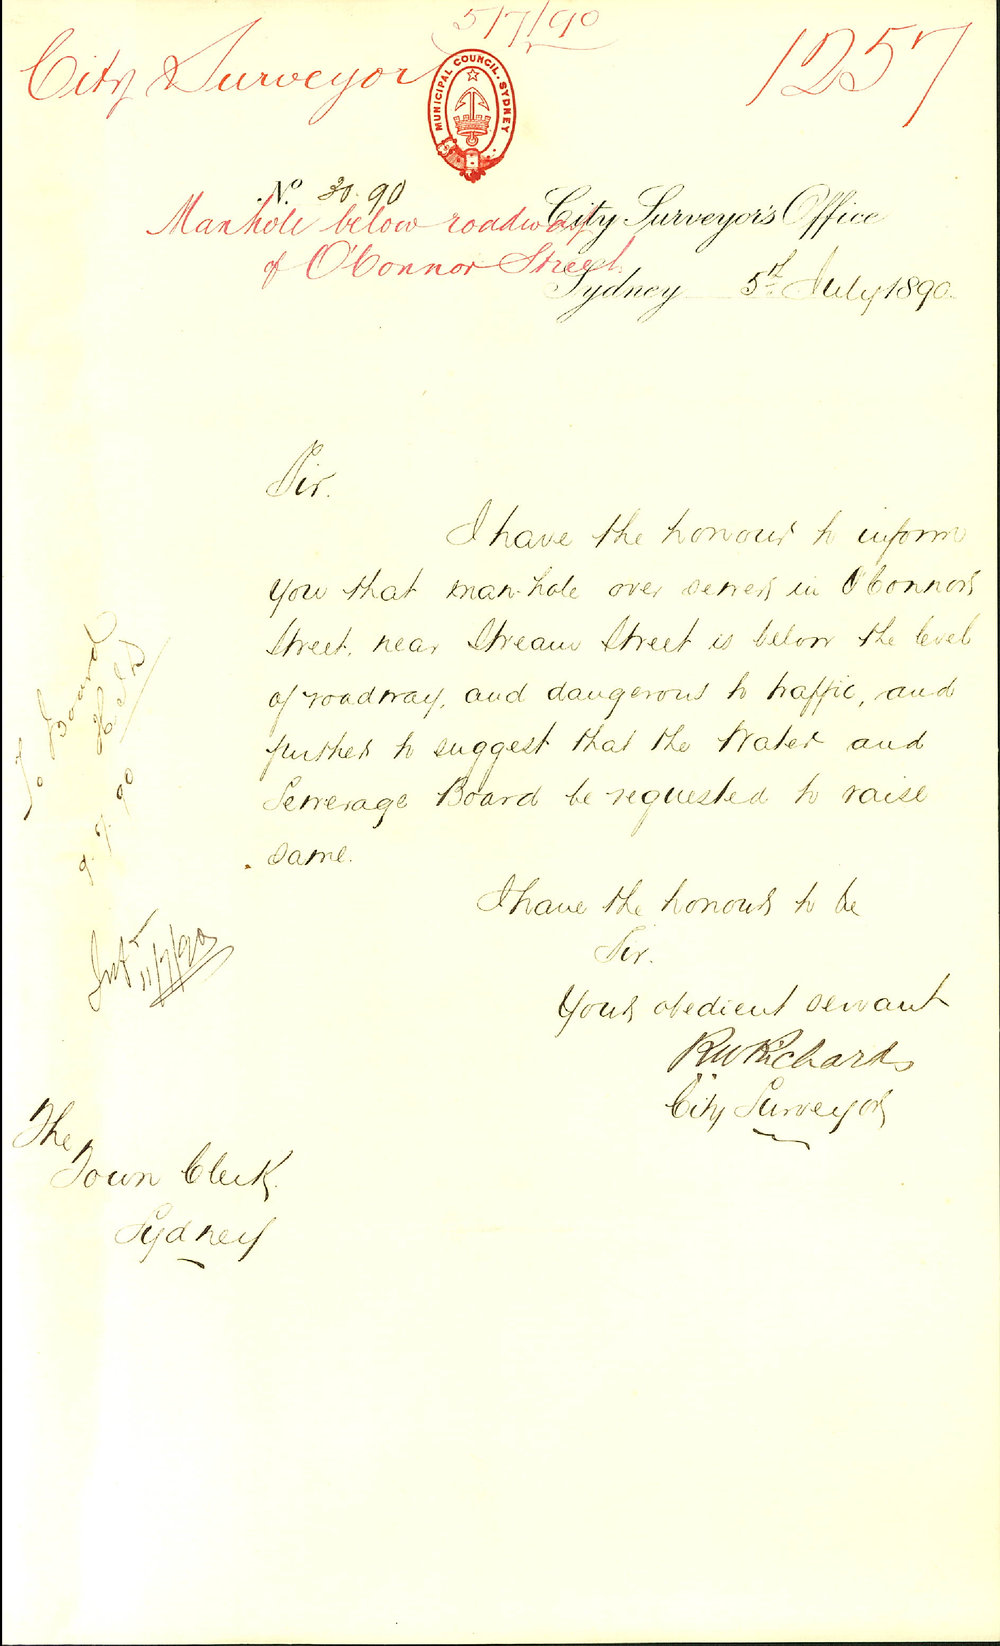 5/7/90
City Surveyor
1257
MUNICIPAL COUNCIL. SYDNEY
No. 30.90
Manhole below roadway
of O'Connor Street
City Surveyor's Office
Sydney 5th July 1890
Sir.
I have the honour to inform
you that man-hole over sewer in O'Connor
Street, near Stream Street is below the level
of roadway, and dangerous to traffic, and
further to suggest that the Water and
Sewerage Board be requested to raise
same.
I have the honour to be
Sir.
Your obedient servant
RW Richards
City Surveyor
To Board
9.7.90
11/7/90
The
Town Clerk.
Sydney